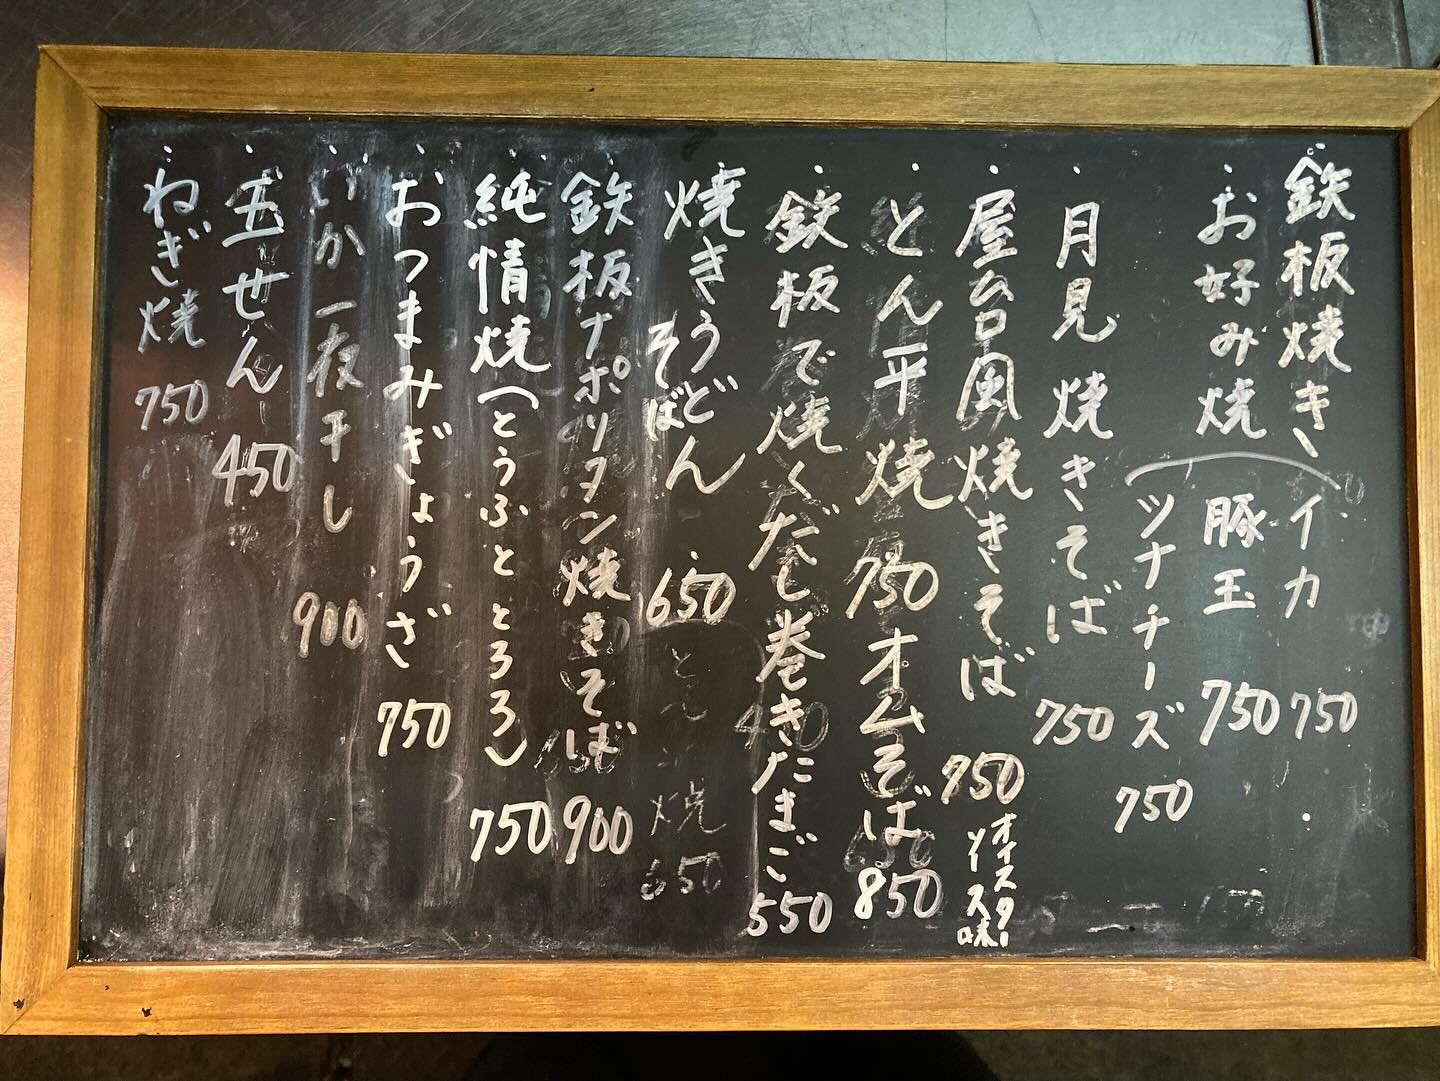 鉄板焼き、イカ 750
お好み焼 豚玉 750
ツナチーズ 750
月見焼きそば 750
屋台風焼きそば 750 オイスターソース味
とん平焼 750 オムそば 850
鉄板で焼くだし巻きたまご 550
焼きうどん 650
そば
鉄板ナポリタン焼きそば 900
純情焼(とうふととろろ) 750
おつまみぎょうざ 750
いか一夜干し 900
玉せん 450
ねぎ焼 750